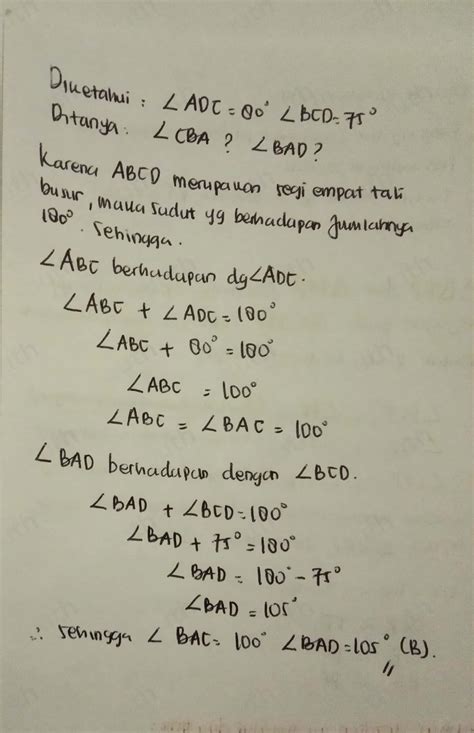 Diketahui : ∠ADC = 80° ∠BCD = 75°
Ditanya : ∠CBA ? ∠BAD ?
Karena ABCD merupakan segi empat tali
busur, maka sudut yg berhadapan jumlahnya
180°. Sehingga.
∠ABC berhadapan dg ∠ADC.
∠ABC + ∠ADC = 180°
∠ABC + 80° = 180°
∠ABC = 100°
∠ABC = ∠BAC = 100°
∠BAD berhadapan dengan ∠BCD.
∠BAD + ∠BCD = 180°
∠BAD + 75° = 180°
∠BAD = 180° - 75°
∠BAD = 105°
∴ Sehingga ∠ BAC = 100° ∠BAD = 105° (B).